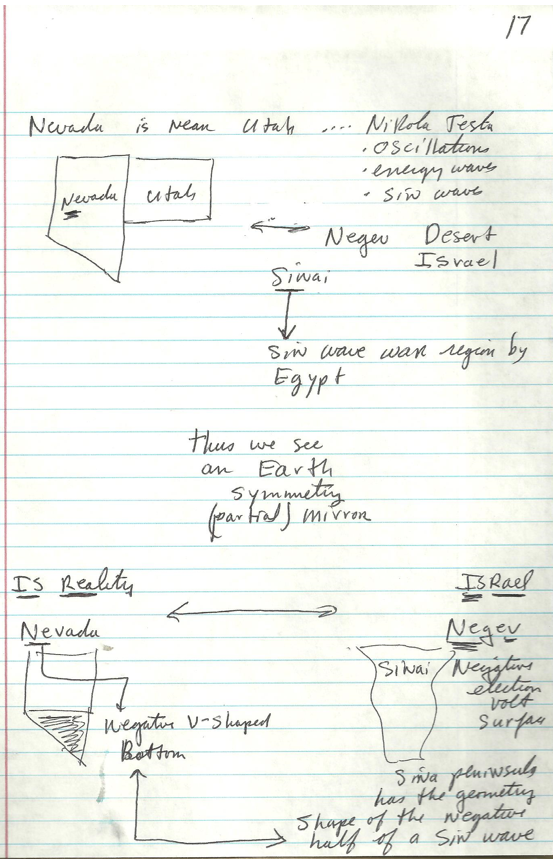 17
Nevada is near Utah .... Nikola Tesla
• Oscillations
• energy waves
• sin waves
Nevada Utah
Negev Desert
Israel
Sinai
Sin wave war region by
Egypt
thus we see
an Earth
symmetry
(partial) mirror
IS Reality
ISRael
Nevada
Negev
Sinai Negative
election
volt
Surface
Negative V-Shaped
Bottom
Sina peninsula
has the geometry
Shape of the negative
half of a Sin wave